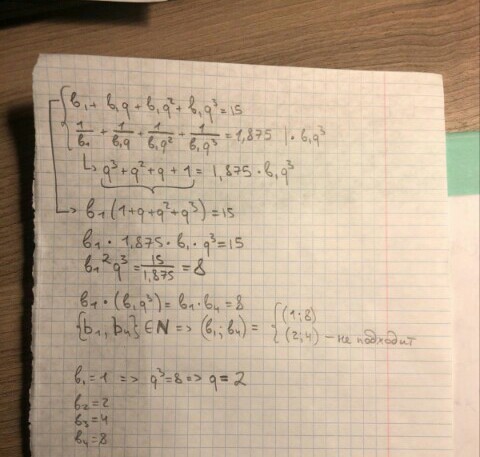 b₁ + b₁q + b₁q² + b₁q³ = 15
1/b₁ + 1/b₁q + 1/b₁q² + 1/b₁q³ = 1,875 | · b₁q³
q³ + q² + q + 1 = 1,875 · b₁q³
b₁(1+q+q²+q³) = 15
b₁ · 1,875 · b₁ · q³ = 15
b₁²q³ = 15/1,875 = 8
b₁ · (b₁q³) = b₁ · b₄ = 8
{b₁, b₄} ∈ N => (b₁; b₄) = { (1; 8)
(2; 4) – не подходит
b₁ = 1 => q³ = 8 => q = 2
b₂ = 2
b₃ = 4
b₄ = 8